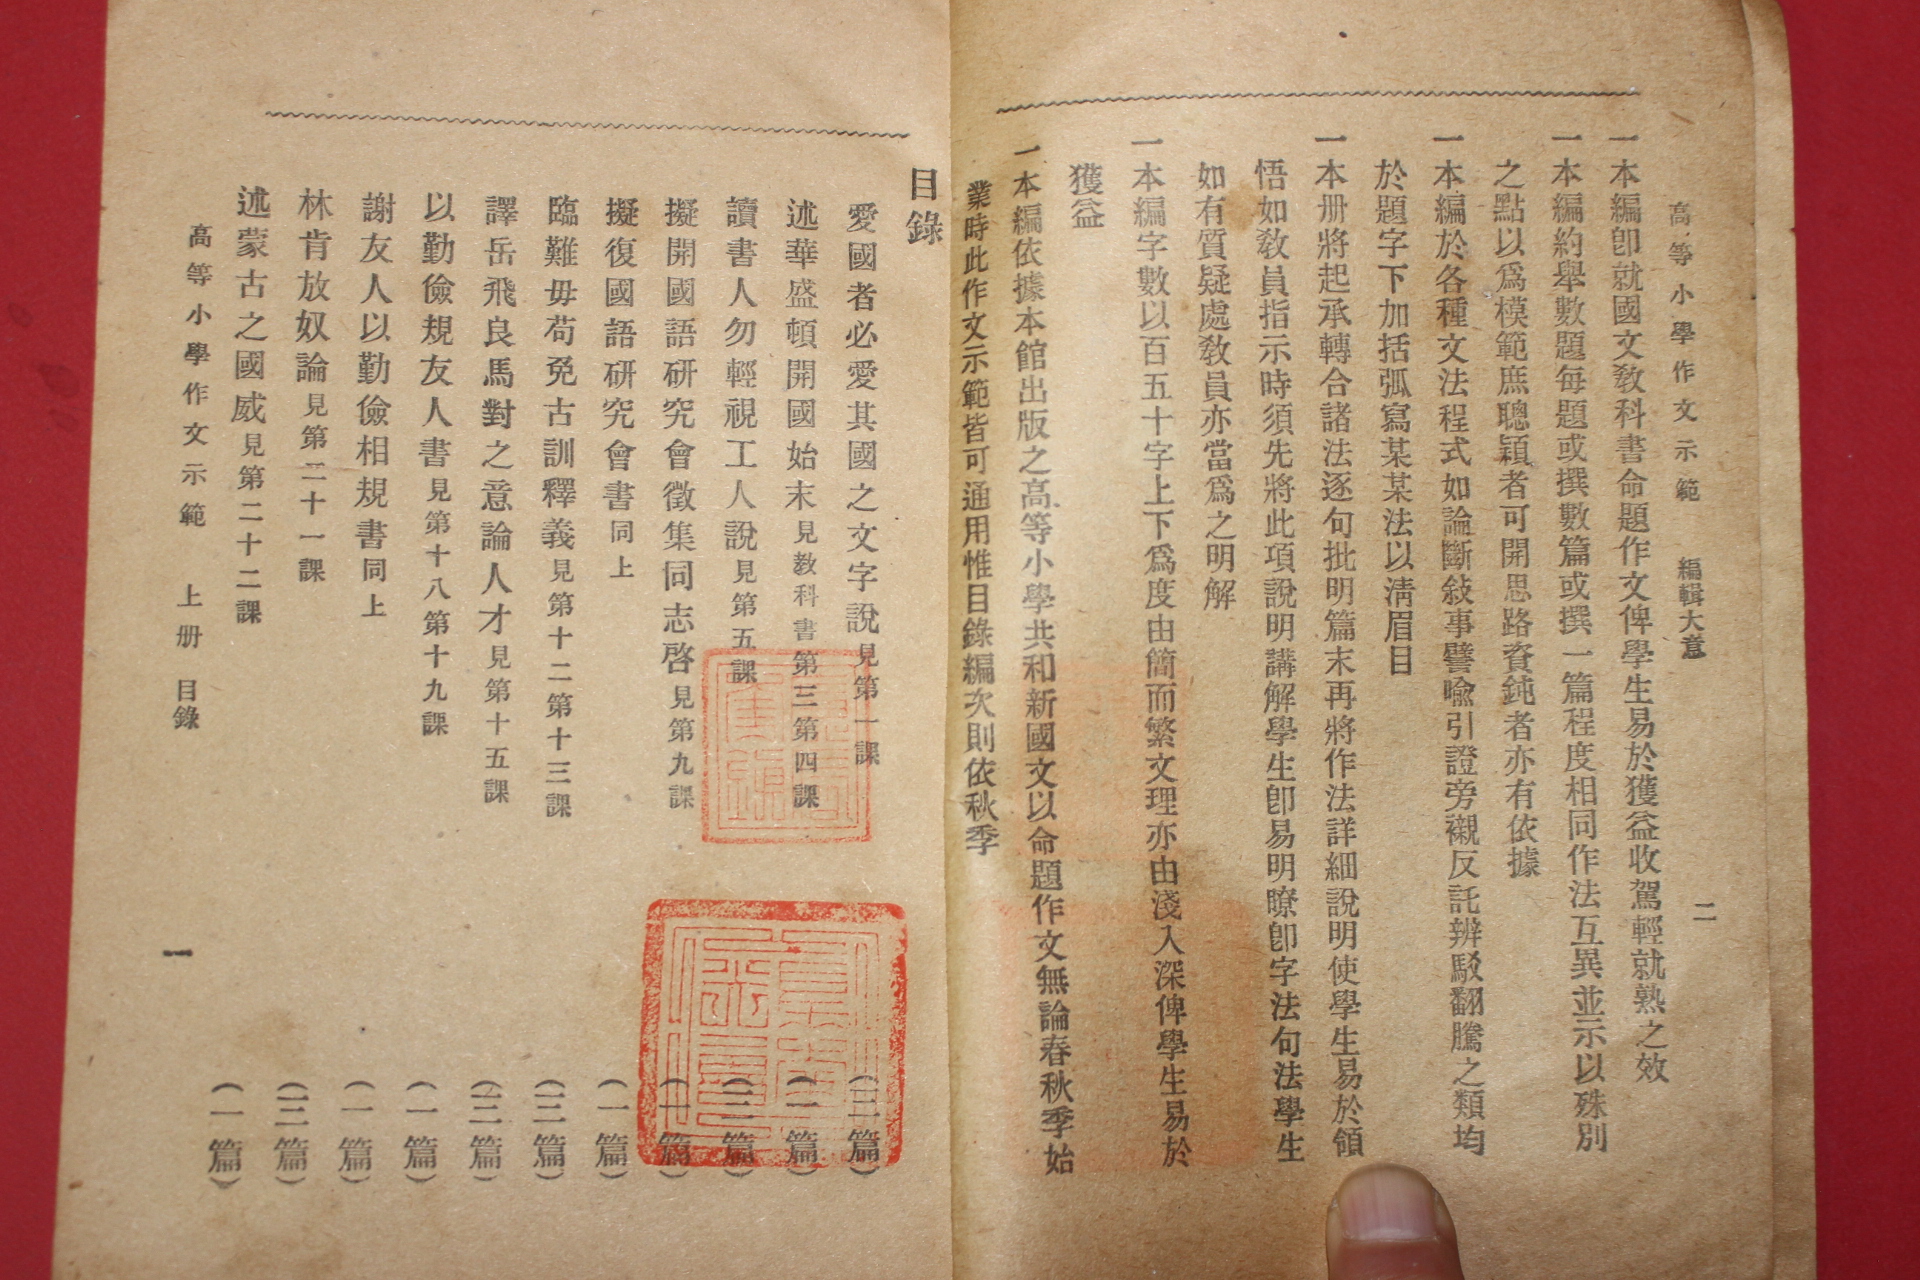 高等小學作文示範 編輯大意 二
一本編卽就國文敎科書命題作文俾學生易於獲益收駕輕就熟之效
一本編約舉數題每題或撰數篇或撰一篇程度相同作法互異並示以殊別
之點以爲模範庶聰穎者可開思路資鈍者亦有依據
一本編於各種文法程式如論斷敍事譬喩引證旁襯反託辨駁翻騰之類均
於題字下加括弧寫某某法以淸眉目
一本册將起承轉合諸法逐句批明篇末再將作法詳細說明使學生易於領
悟如敎員指示時須先將此項說明講解學生卽易明瞭卽字法句法學生
如有質疑處敎員亦當爲之明解
一本編字數以百五十字上下爲度由簡而繁文理亦由淺入深俾學生易於
獲益
一本編依據本館出版之高等小學共和新國文以命題作文無論春秋季始
業時此作文示範皆可通用惟目錄編次則依秋季
目錄
愛國者必愛其國之文字說見第一課（三篇）
述華盛頓開國始末見敎科書第三第四課（一篇）
讀書人勿輕視工人說見第五課（三篇）
擬開國語研究會徵集同志啓見第九課（一篇）
擬復國語研究會書同上（一篇）
臨難毋苟免古訓釋義見第十二第十三課（三篇）
譯岳飛良馬對之意論人才見第十五課（三篇）
以勤儉規友人書見第十八第十九課（一篇）
謝友人以勤儉相規書同上（一篇）
林肯放奴論見第二十一課（三篇）
述蒙古之國威見第二十二課（一篇）
高等小學作文示範 上册 目錄 一